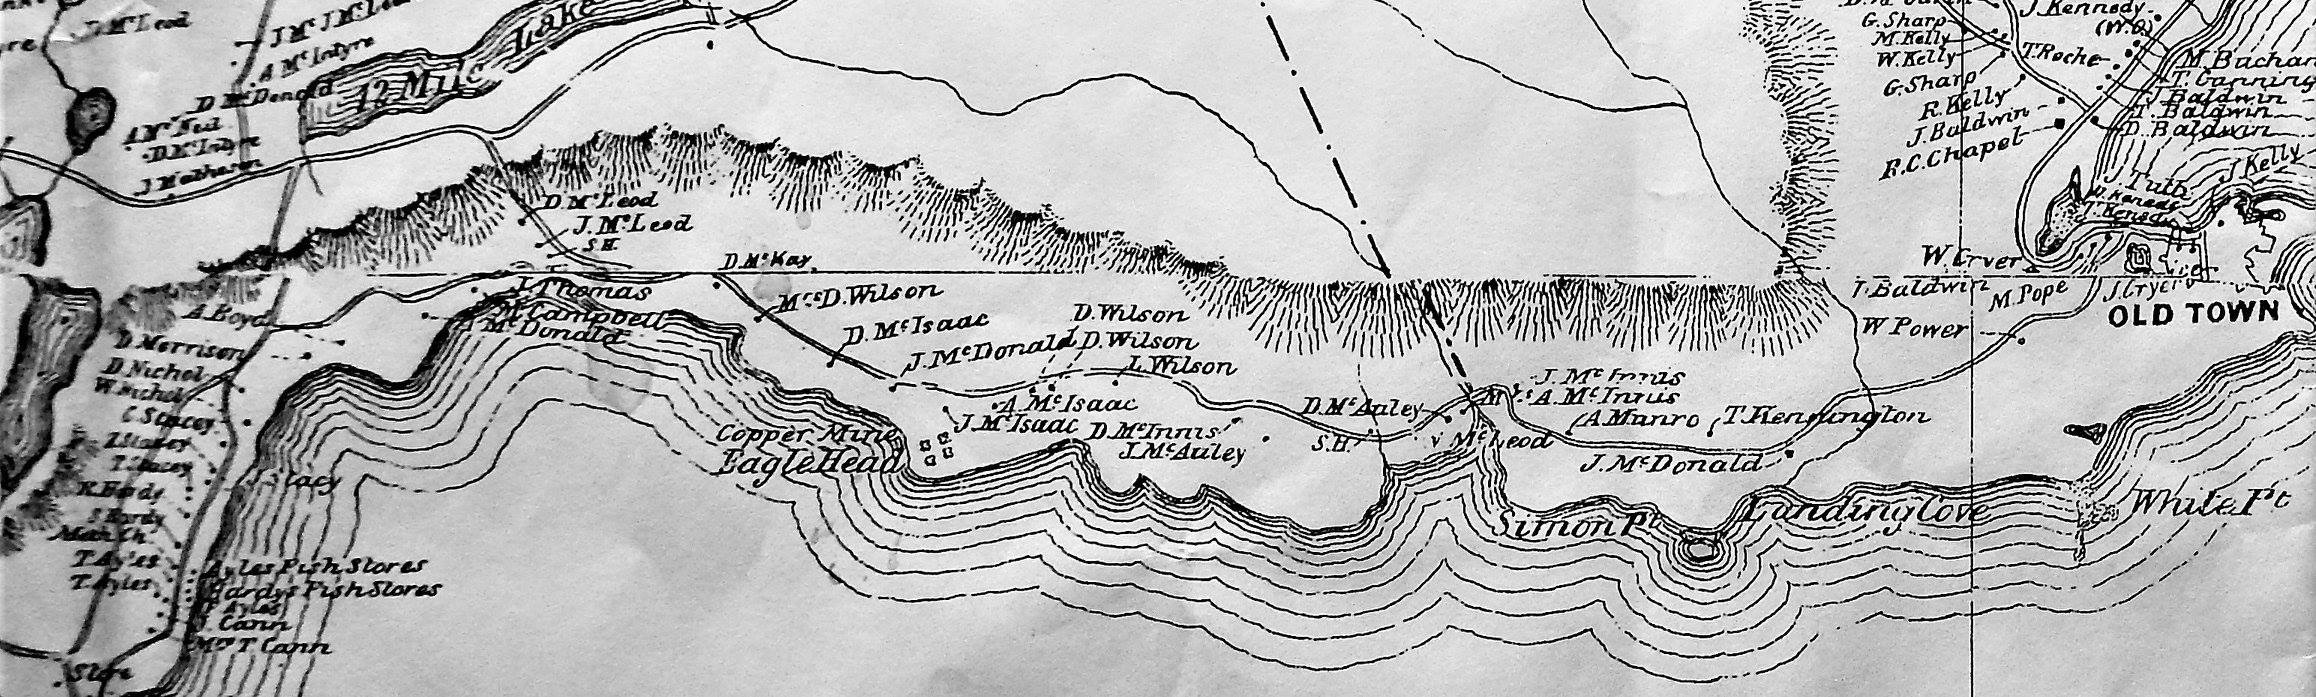 D. McLeod
A. McIntyre
D. McDonald
12 Mile Lake
D. McIntyre
J. Matheson
D. McLeod
J. McLeod
S.H.
D. McKay
J. Thomas
M. Campbell
A. McDonald
A. Boyd
D. Morrison
D. Nichol
W. Nichol
C. Stacey
T. Stacey
J. Stacy
S. Hardy
T. Ayles
T. Ayles
Ayles Fish Stores
Hardys Fish Stores
J. Cann
Mrs T. Cann
Store
Mrs D. Wilson
D. McIsaac
J. McDonald
D. Wilson
D. Wilson
L. Wilson
A. McIsaac
J. McIsaac
Copper Mine
Eagle Head
D. McInnis
J. McAuley
D. McAuley
S.H.
J. McInnis
Mrs A. McInnis
McLeod
A. Munro
T. Kennington
J. McDonald
Simon Pt
Landing Cove
White Pt
J. Kennedy
(W.O.)
G. Sharp
M. Kelly
W. Kelly
T. Roche
G. Sharp
R. Kelly
J. Baldwin
R.C. Chapel
M. Buchan
T. Canning
J. Baldwin
T. Baldwin
D. Baldwin
J. Kelly
J. Tutty
W. Cryer
J. Baldwin
M. Pope
J. Cryer
W Power
OLD TOWN